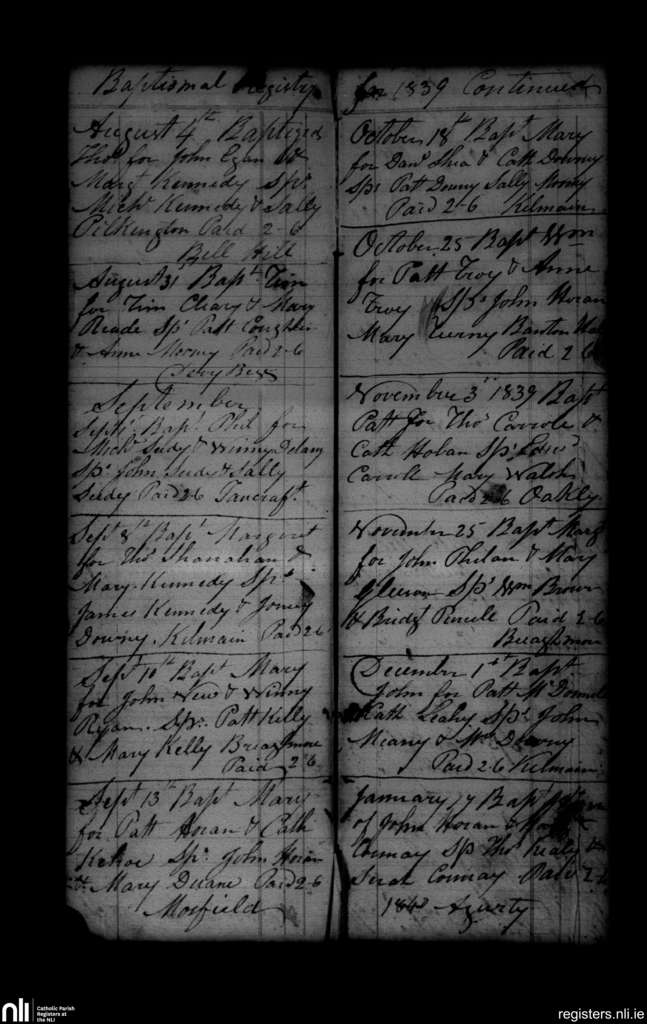 Baptismal Registry
August 4th Baptized
Thos for John Egan &
Margt Kennedy Sps
Michl Kennedy & Sally
Pilkington Paid 2-6
Bell Hill
August 31 Bapt Tim
for Tim Cleary & Mary
Reade Sps Patt Coughlin
& Anne Mooney Paid 2-6
September
Sept 1 Bapt for
Michl & Winny Delany
Sps John & Sally
Paid 2-6
Sept 8th Bapt Margret
for Thos Shanahan &
Mary Kennedy Sps
James Kennedy &
Downy Kilmain Paid 2-6
Sept 10th Bapt Mary
for John & Winny
Ryan Sps Patt Kelly
& Mary Kelly Breaghmore
Paid 2-6
Sept 13th Bapt Mary
for Patt Horan & Cath
Kehoe Sps John Horan
& Mary Duane Paid 2-6
Moxfield
for 1839 Continued
October 18th Bapt Mary
for Danl Shea & Cath Downy
Sps Patt Downy Sally Mooney
Paid 2-6 Kilmain
October 25 Bapt Wm
for Patt Troy & Anne
Troy Sps John Horan
Mary
Paid 2 6
November 3rd 1839 Bapt
Patt for Thos Carrole &
Cath Hoban Sps Edwd
Carroll Mary Walsh
Paid 2-6 Oakly
November 25 Bapt Margt
for John Phelan & Mary
Gleeson Sps Wm Brown
& Bridgt Purcell Paid 2-6
Breaghmore
December 1st Bapt
John for Patt McDonnel
Cath Leahy Sps John
Meany & Downy
Paid 2-6 Kilmain
January 17 Bapt
of John Horan &
Conway Sps Thos Healy &
Conway Paid 2-6
1840
nli
Catholic Parish
Registers at
the NLI
registers.nli.ie